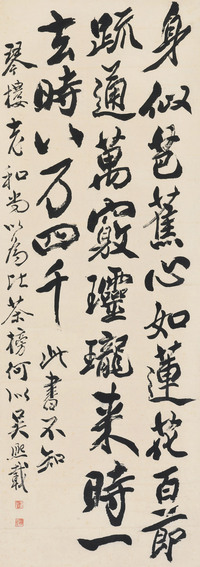 身似芭蕉心如蓮花百節
疏通萬竅玲瓏来時一
去時八万四千 此書不知
琴樓老和尚以為比茶榜何似 吴熙載